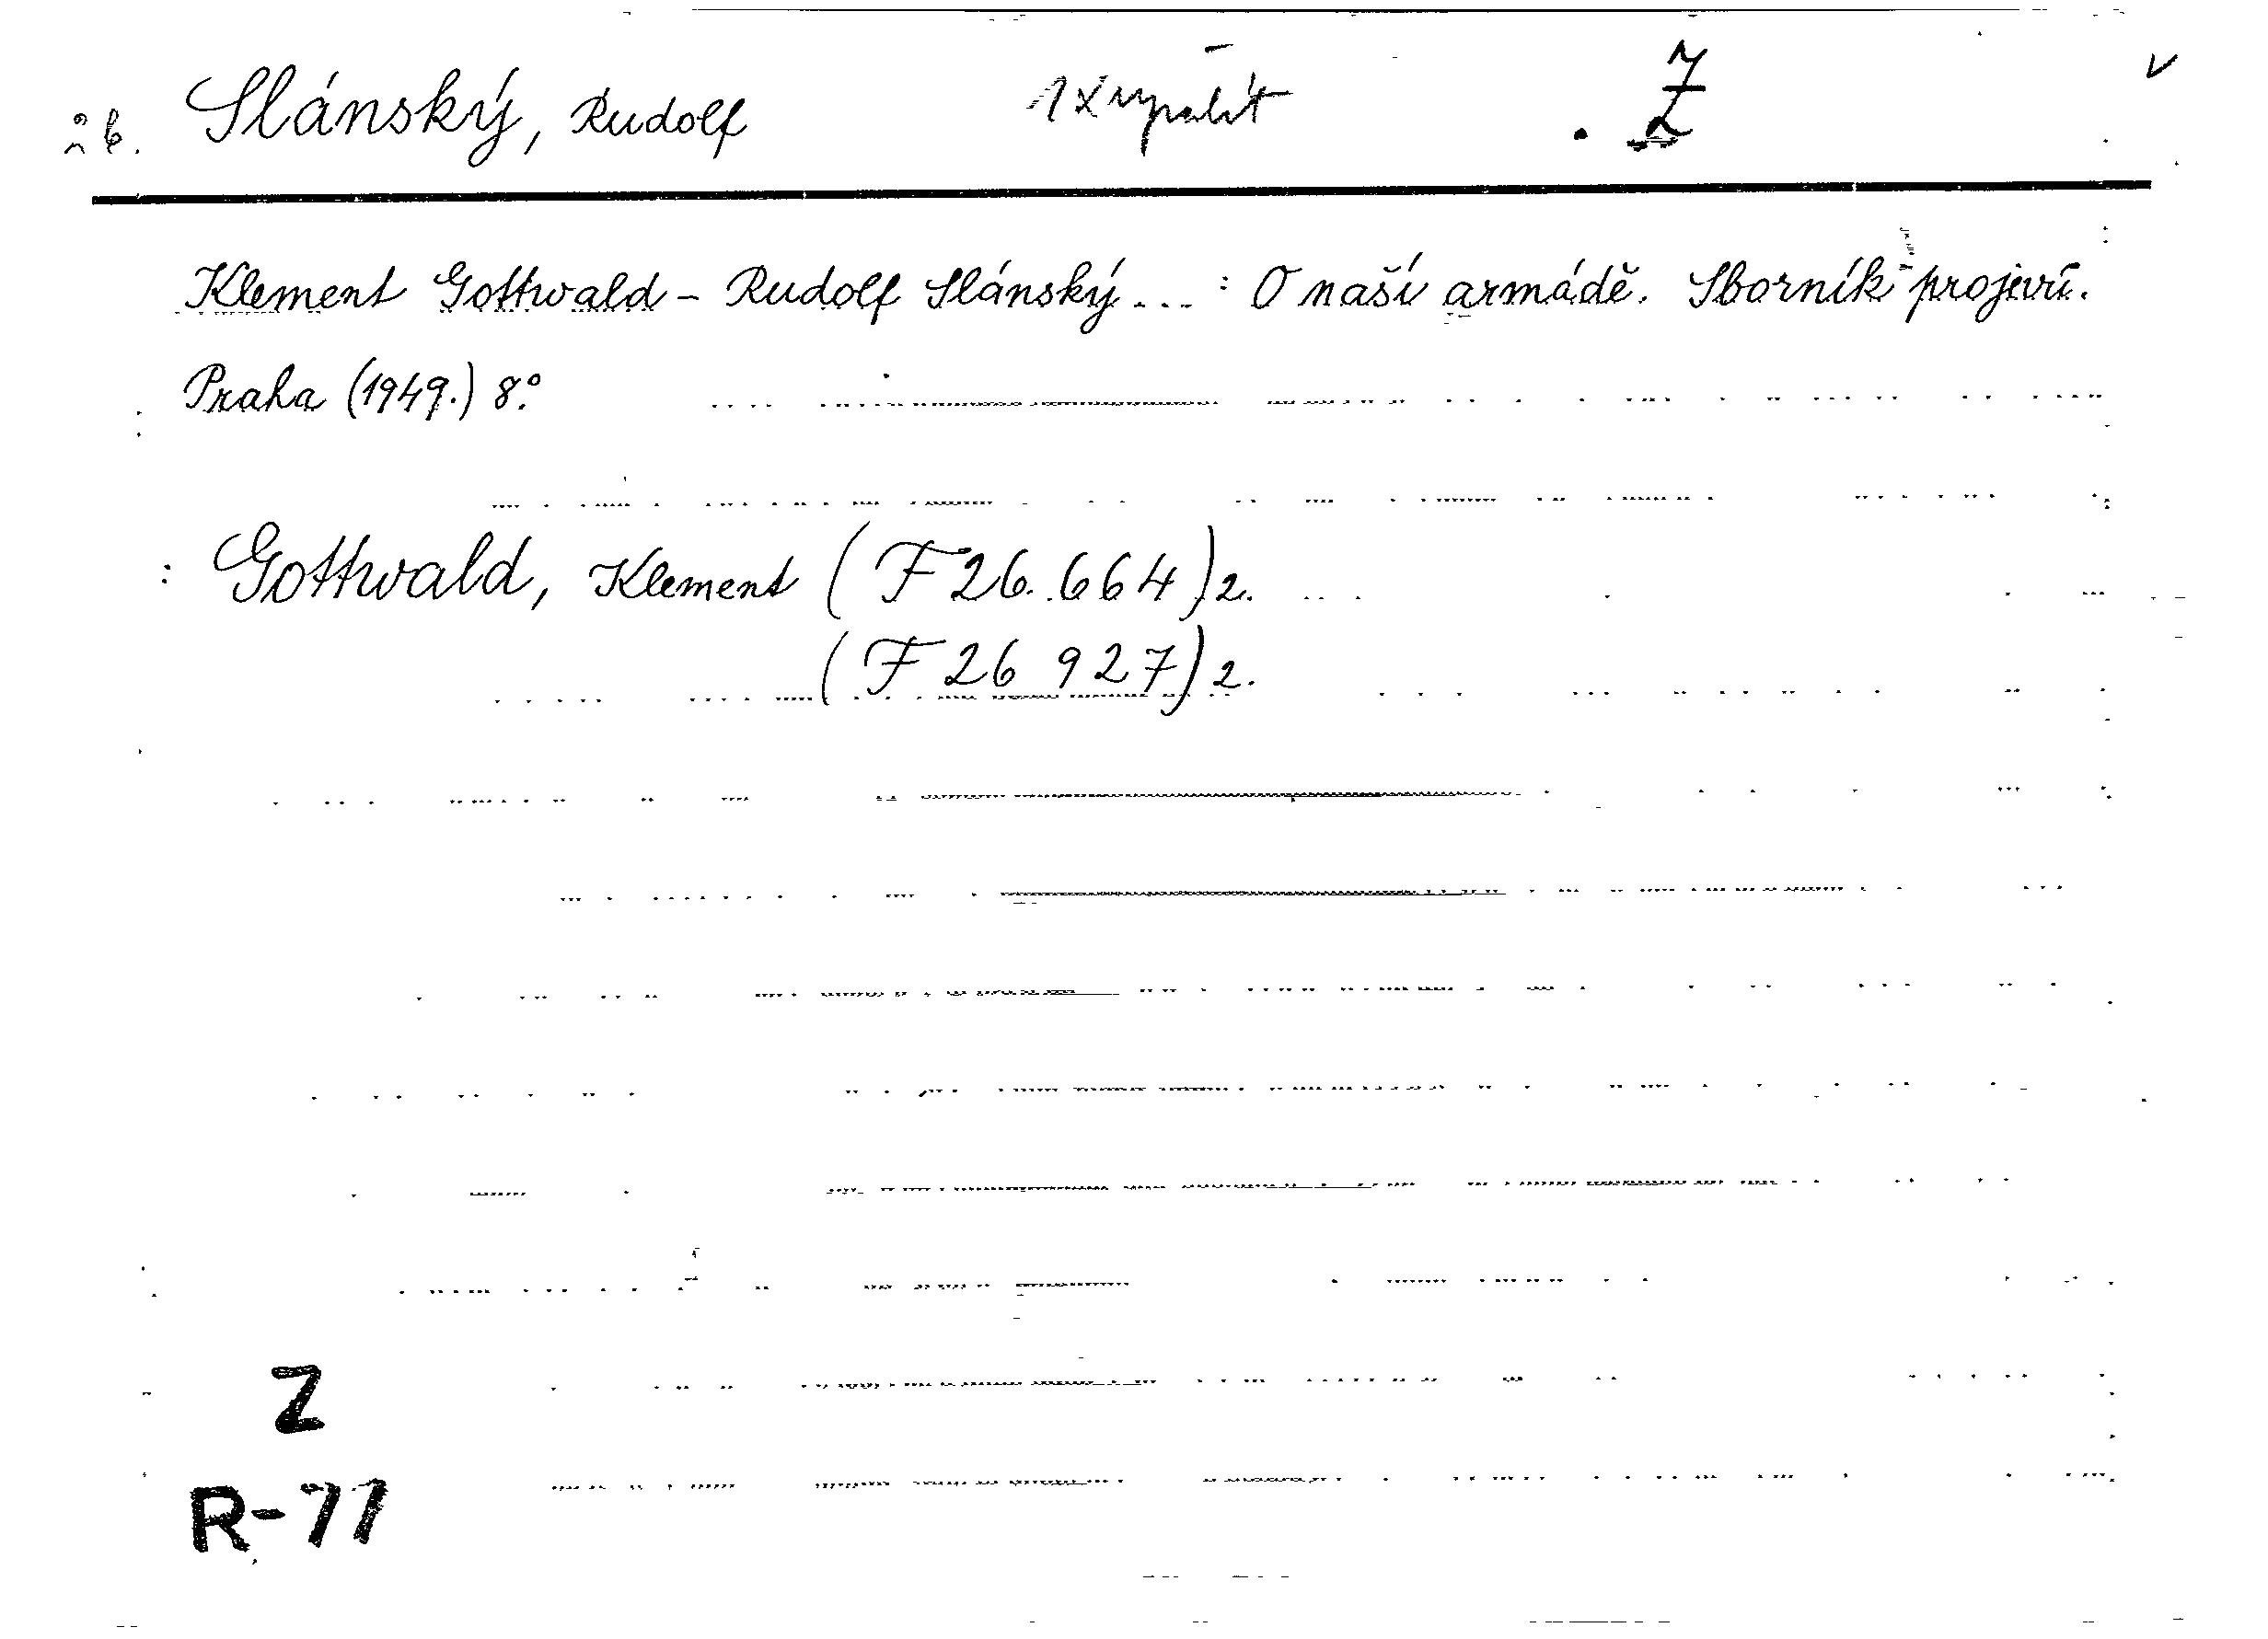 Slánský, Rudolf 1x vypálit Ž v
Klement Gottwald - Rudolf Slánský... : O naší armádě. Sborník projevů.
Praha (1949.) 8°.
: Gottwald, Klement (F 26.664) 2.
(F 26 927) 2.
Z
R-77